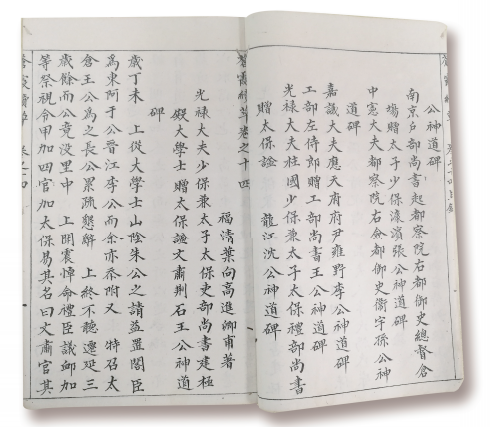 公神道碑
南京戶部尚書起都察院右都御史總督倉
場贈太子少保滾濱張公神道碑
中憲大夫都察院右僉都御史衢宇孫公神
道碑
嘉議大夫應天府府尹雍野李公神道碑
工部左侍郎贈工部尚書王公神道碑
光祿大夫柱國少保兼太子太保禮部尚書
贈太保謚 龍江沈公神道碑
蒼霞續草卷之十四
福清葉向高進卿甫著
光祿大夫少保兼太子太保吏部尚書建極
殿大學士贈太保謚文肅荊石王公神道
碑
歲丁未 上從大學士山陰朱公之請益置閣臣
為東阿于公晉江李公而余亦忝附又 特召太
倉王公為之長公累疏懇辭 上終不聽遷延三
歲餘而公竟沒里中 上聞震悼命禮臣議䘏加
等祭視令甲加四官加太保易其名曰文肅官其
蒼霞續草 卷之十四